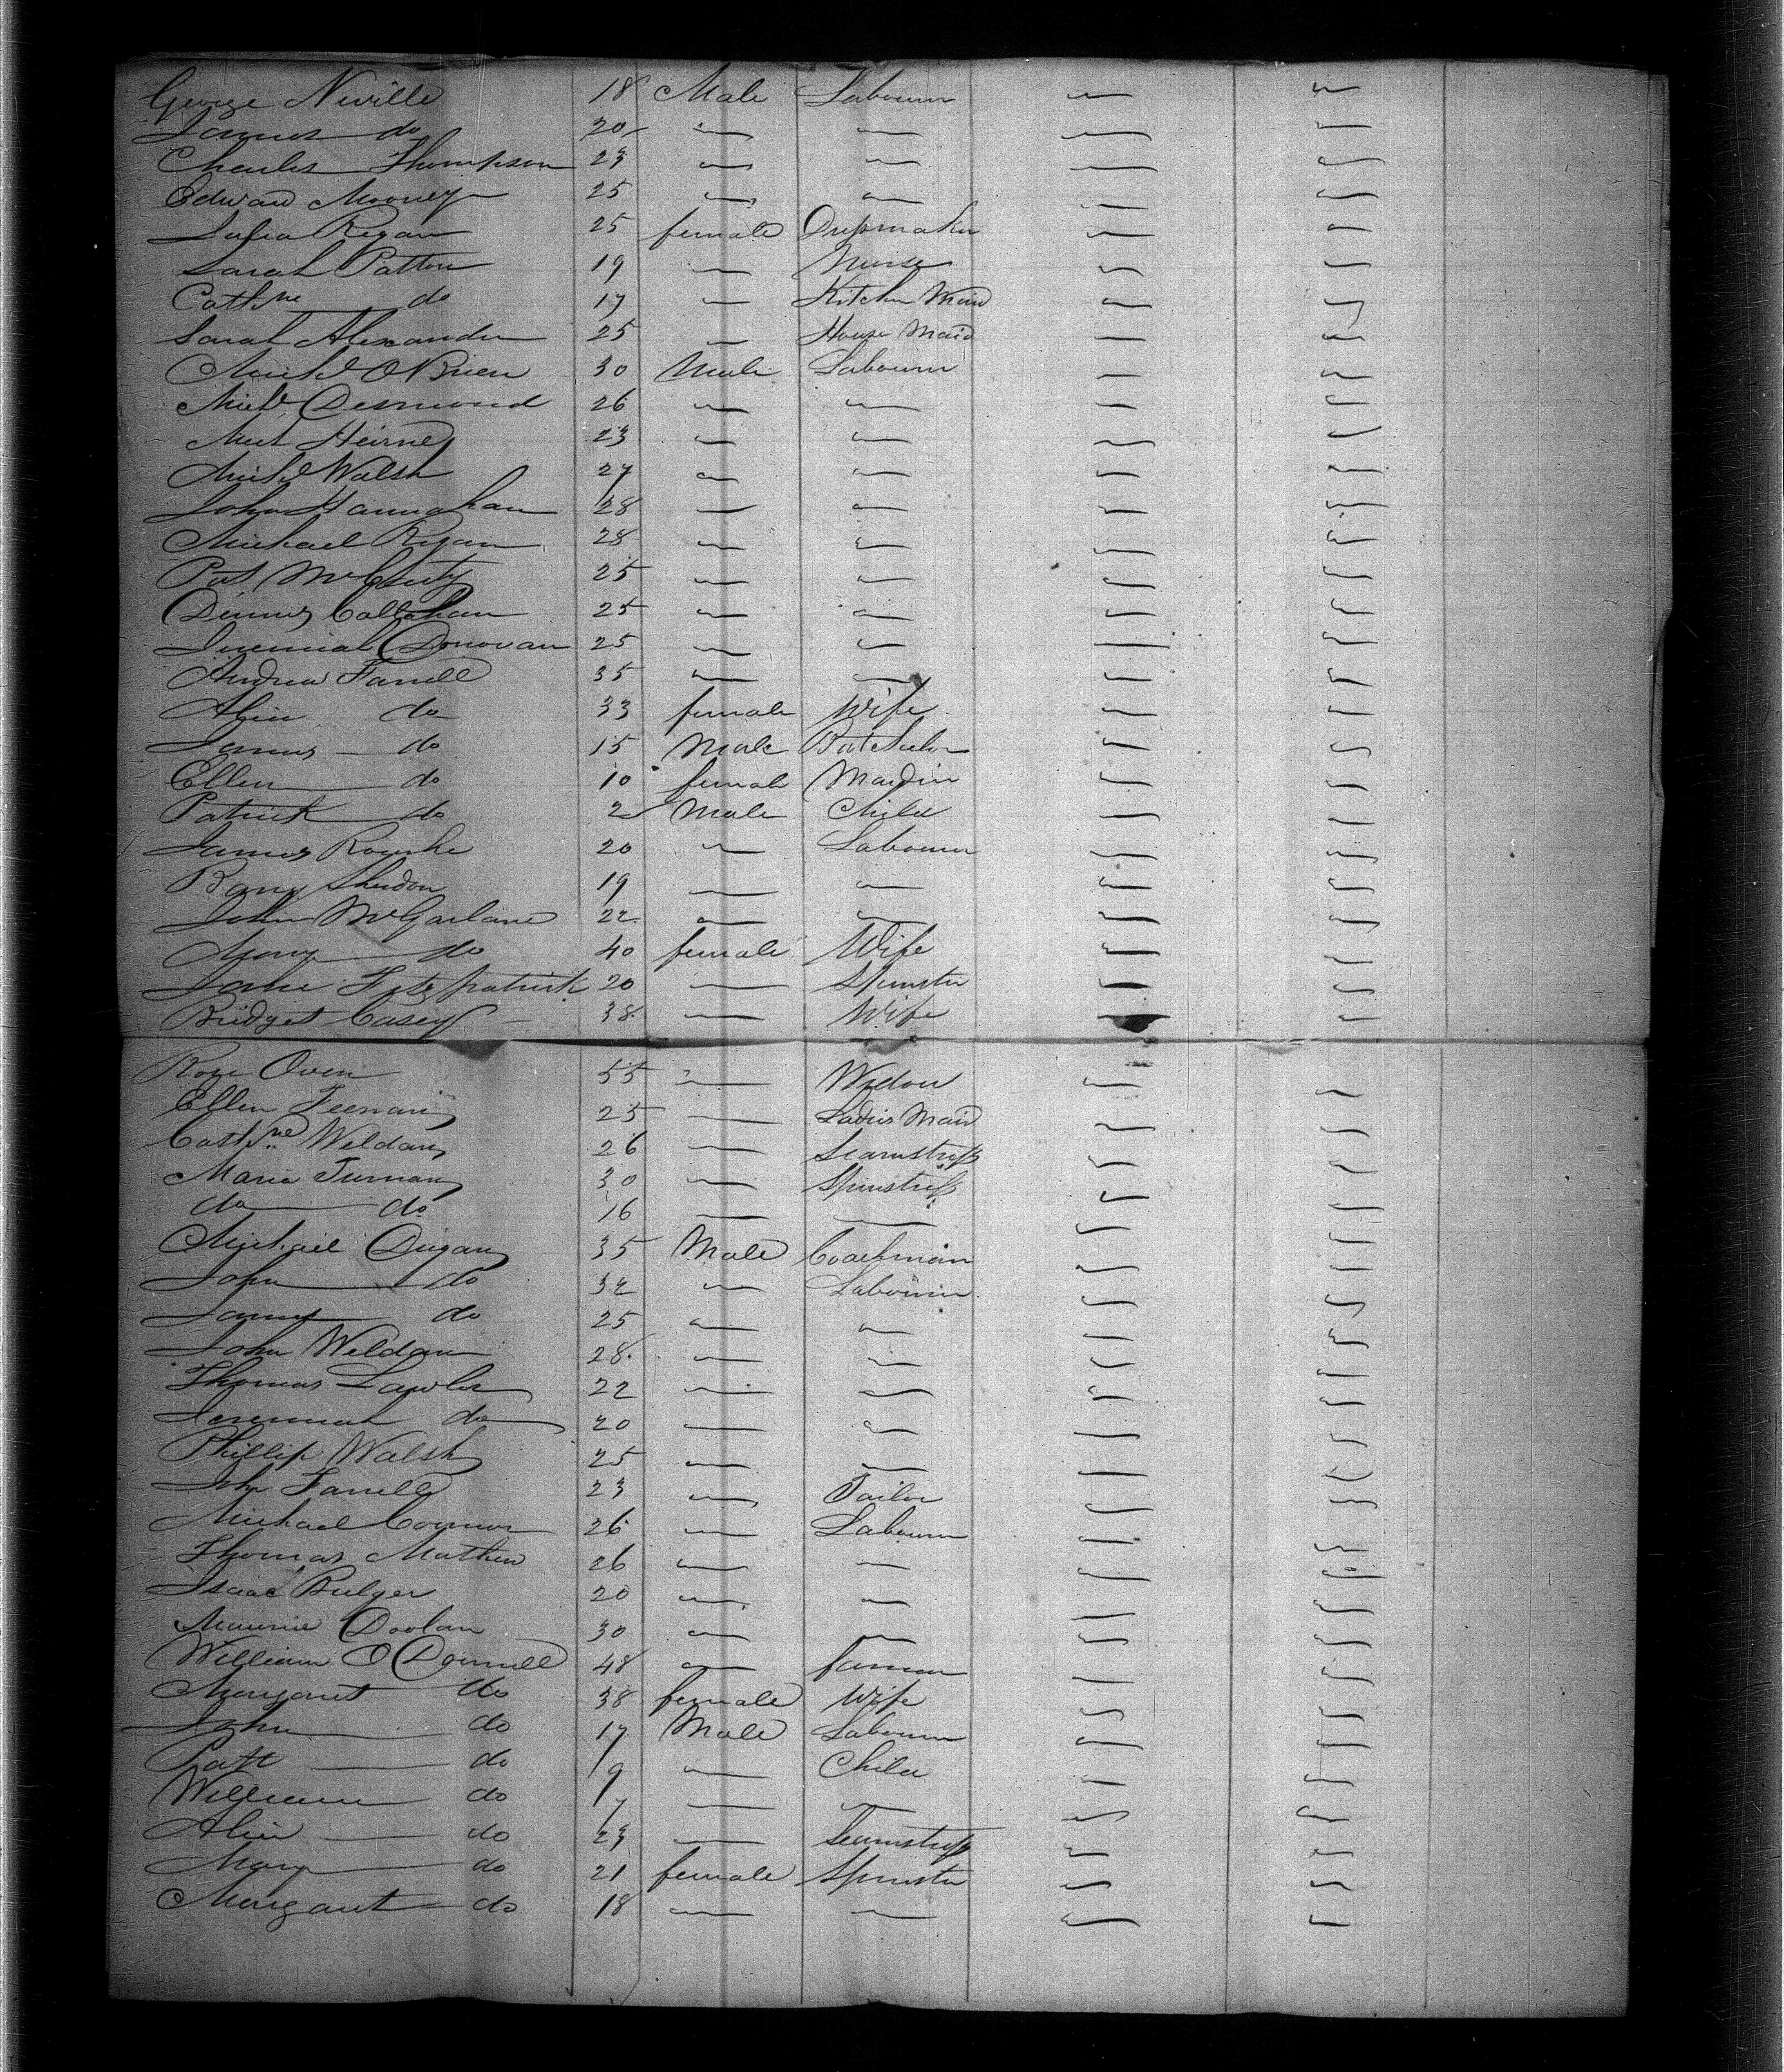 George Neville 18 Male Labourer " "
James do 20 " " " "
Charles Thompson 23 " " " "
Edward Mooney 25 " " " "
Julia Regan 25 female Dressmaker " "
Sarah Patton 19 " Nurse " "
Cathne do 17 " Kitchen Maid " "
Sarah Alexander 25 " House Maid " "
Michl O'Brien 30 Male Labourer " "
Michl Desmond 26 " " " "
23 " " " "
Michl Walsh 27 " " " "
John Hannahan 28 " " " "
Michael Regan 28 " " " "
Pat 25 " " " "
Dennis Callahan 25 " " " "
Jeremiah Donovan 25 " " " "
Andrew Farrell 35 " " " "
Alice do 33 female Wife " "
James do 15 Male Batchelor " "
Ellen do 10 female Maiden " "
Patrick do 2 Male Child " "
James Rourke 20 " Labourer " "
Barny Sheridan 19 " " " "
John McGarlane 22 " " " "
Mary do 40 female Wife " "
Jane Fitzpatrick 20 " Spinster " "
Bridget Casey 38 " Wife " "
Rose Owen 55 " Widow " "
Ellen 25 " Ladies Maid " "
Cathne Weldan 26 " Seamstress " "
Maria 30 " Spinstress " "
do do 16 " " " "
Michael Dugan 35 Male Coachman " "
John do 32 " Labourer " "
James do 25 " " " "
John Weldan 28 " " " "
Thomas Lawler 22 " " " "
Jeremiah do 20 " " " "
Phillip Walsh 25 " " " "
John Farrell 23 " Tailor " "
Michael Connor 26 " Labourer " "
Thomas Mathew 26 " " " "
Isaac Bulger 20 " " " "
Maurice Doolan 30 " " " "
William O'Donnell 48 " farmer " "
Margaret do 38 female Wife " "
John do 17 Male Labourer " "
Patt do 9 " Child " "
William do 7 " " " "
Alice do 23 " Seamstress " "
Mary do 21 female Spinster " "
Margaret do 18 " " " "